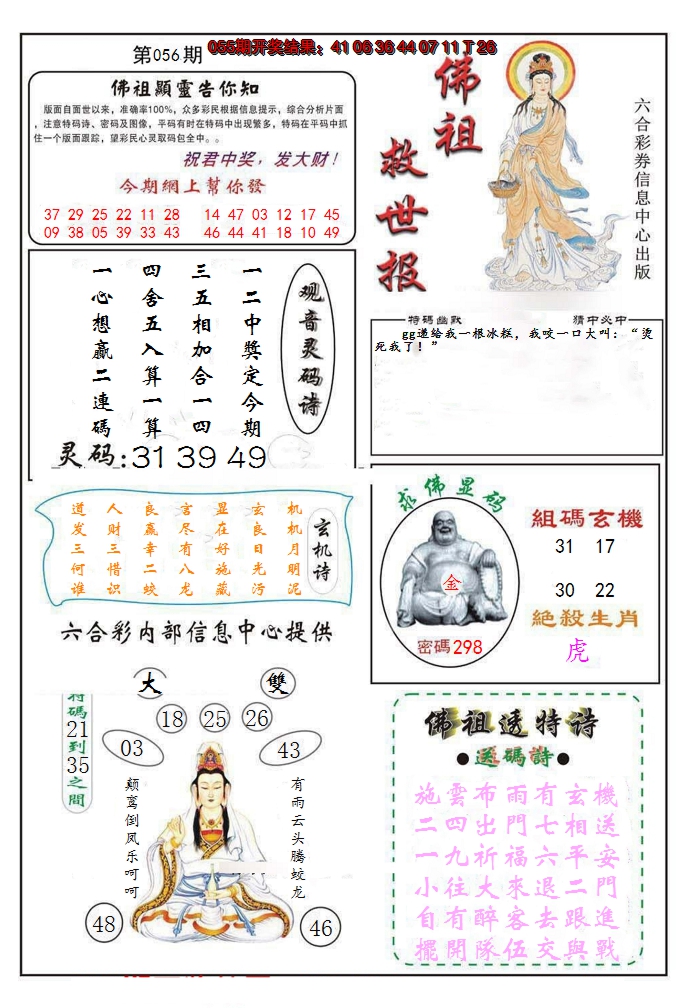 第056期
055期开奖结果：41 06 36 44 07 11 丁26
佛祖顯靈告你知
版面自面世以来，准确率100%，众多彩民根据信息提示，综合分析片面
，注意特码诗、密码及图像，平码有时在特码中出现繁多，特码在平码中抓
住一个版面跟踪，望彩民心灵取码包全中。。
祝君中奖，发大财！
今期網上幫你發
37 29 25 22 11 28 14 47 03 12 17 45
09 38 05 39 33 43 46 44 41 18 10 49
佛祖
救世报
六合彩券信息中心出版
观音灵码诗
一二中獎定今期
三五相加合一四
四舍五入算一算
一心想赢二連碼
灵码:31 39 49
特碼幽默
猜中必中
gg递给我一根冰糕，我咬一口大叫：“烫
死我了！”
玄机诗
机机月明泥
玄良日光污
显在好施藏
言尽有八龙
良赢幸二蛟
人财三惜识
道发三何谁
六合彩内部信息中心提供
求佛显码
金
密碼298
組碼玄機
31 17
30 22
絶殺生肖
虎
大
雙
特碼21到35之間
18 25 26
03
43
颠鸾倒凤乐呵呵
有雨云头腾蛟龙
48
46
佛祖透特诗
●送碼詩●
施雲布雨有玄機
二四出門七相送
一九祈福六平安
小往大來退二門
自有醉客去跟進
擺開隊伍交與戰